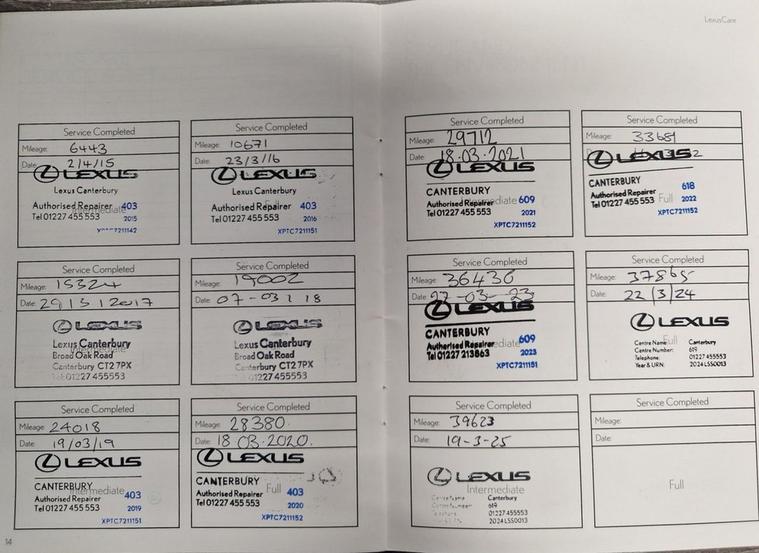 LexusCare
Service Completed
Mileage: 6443
Date: 2/4/15
LEXUS
Lexus Canterbury
Intermediate
Authorised Repairer 403
Tel 01227 455 553 2015
Service Completed
Mileage: 10671
Date: 23/3/16
LEXUS
Lexus Canterbury
Full
Authorised Repairer 403
Tel 01227 455 553 2016
XPTC7211151
Service Completed
Mileage: 15324
Date: 29 15 12017
LEXUS
Lexus Canterbury
Broad Oak Road
Intermediate
Canterbury CT2 7PX
01227 455553
Service Completed
Mileage: 19002
Date: 07-03 1 18
LEXUS
Lexus Canterbury
Broad Oak Road
Full
Canterbury CT2 7PX
01227 455553
Service Completed
Mileage: 24018
Date: 19/03/19
LEXUS
CANTERBURY
Intermediate
Authorised Repairer 403
Tel 01227 455 553 2019
XPTC7211151
Service Completed
Mileage: 28380
Date: 18 03.2020.
LEXUS
CANTERBURY
Full
Authorised Repairer 403
Tel 01227 455 553 2020
XPTC7211152
14
Service Completed
Mileage: 29712
Date: 18.03.2021
LEXUS
CANTERBURY
Intermediate
Authorised Repairer 609
Tel 01227 455 553 2021
XPTC7211152
Service Completed
Mileage: 33681
Date:
LEXUS
CANTERBURY 618
Full
Authorised Repairer 2022
Tel 01227 455 553
XPTC7211152
Service Completed
Mileage: 36436
Date: 07-03-23
LEXUS
CANTERBURY
Intermediate
Authorised Repairer 609
Tel 01227 213863 2023
XPTC7211151
Service Completed
Mileage: 37865
Date: 22/3/24
LEXUS
Full
Centre Name: Canterbury
Centre Number: 619
Telephone: 01227 455553
Year & URN: 2024LSS0013
Service Completed
Mileage: 39623
Date: 19-3-25
LEXUS
Intermediate
Centre Name Canterbury
Centre Number: 619
Telephone: 01227 455553
2024LSS0013
Service Completed
Mileage:
Date:
Full